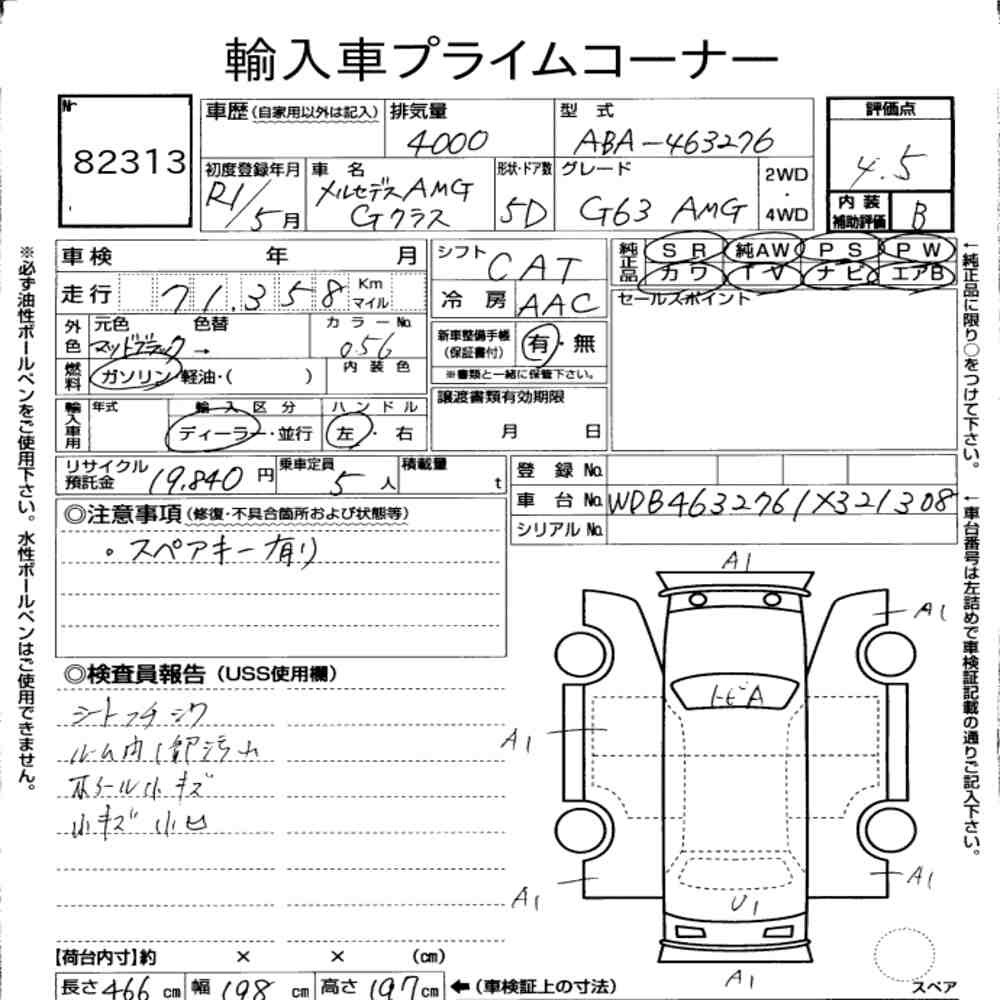 輸入車プライムコーナー
Nr
82313
車歴(自家用以外は記入)
排気量
4000
型 式
ABA-463276
評価点
4.5
初度登録年月
R1/5月
車 名
メルセデスAMG
Gクラス
形状・ドア数
5D
グレード
G63 AMG
2WD
・
4WD
内 装
補助評価
B
車検 年 月
シフト
CAT
純正品
SR 純AW PS PW
カワ TV ナビ エアB
走行 71.358 Km
マイル
冷 房 AAC
セールスポイント
外色
元色 色替
マットブラック →
カラーNo.
056
新車整備手帳
(保証書付)
有・無
※書類と一緒に保管下さい。
燃料
ガソリン・軽油・( )
内 装 色
輸入車用
年式
輸 入 区 分
ディーラー・並行
ハ ン ド ル
左・右
譲渡書類有効期限
月 日
リサイクル
預託金
19,840円
乗車定員
5人
積載量
t
登 録 No.
車 台 No. WDB4632761X321308
シリアル No.
◎注意事項(修復・不具合箇所および状態等)
・スペアキー有り
◎検査員報告(USS使用欄)
ルーム内 汚れ
ホイール小キズ
小キズ 小凹
A1
A1
トビA
A1
A1
A1
U1
A1
スペア
【荷台内寸】約 × × (cm)
長さ466cm 幅198cm 高さ197cm ←(車検証上の寸法)
※必ず油性ボールペンをご使用下さい。水性ボールペンはご使用できません。
←純正品に限り○をつけて下さい。
←車台番号は左詰めで車検証記載の通りご記入下さい。